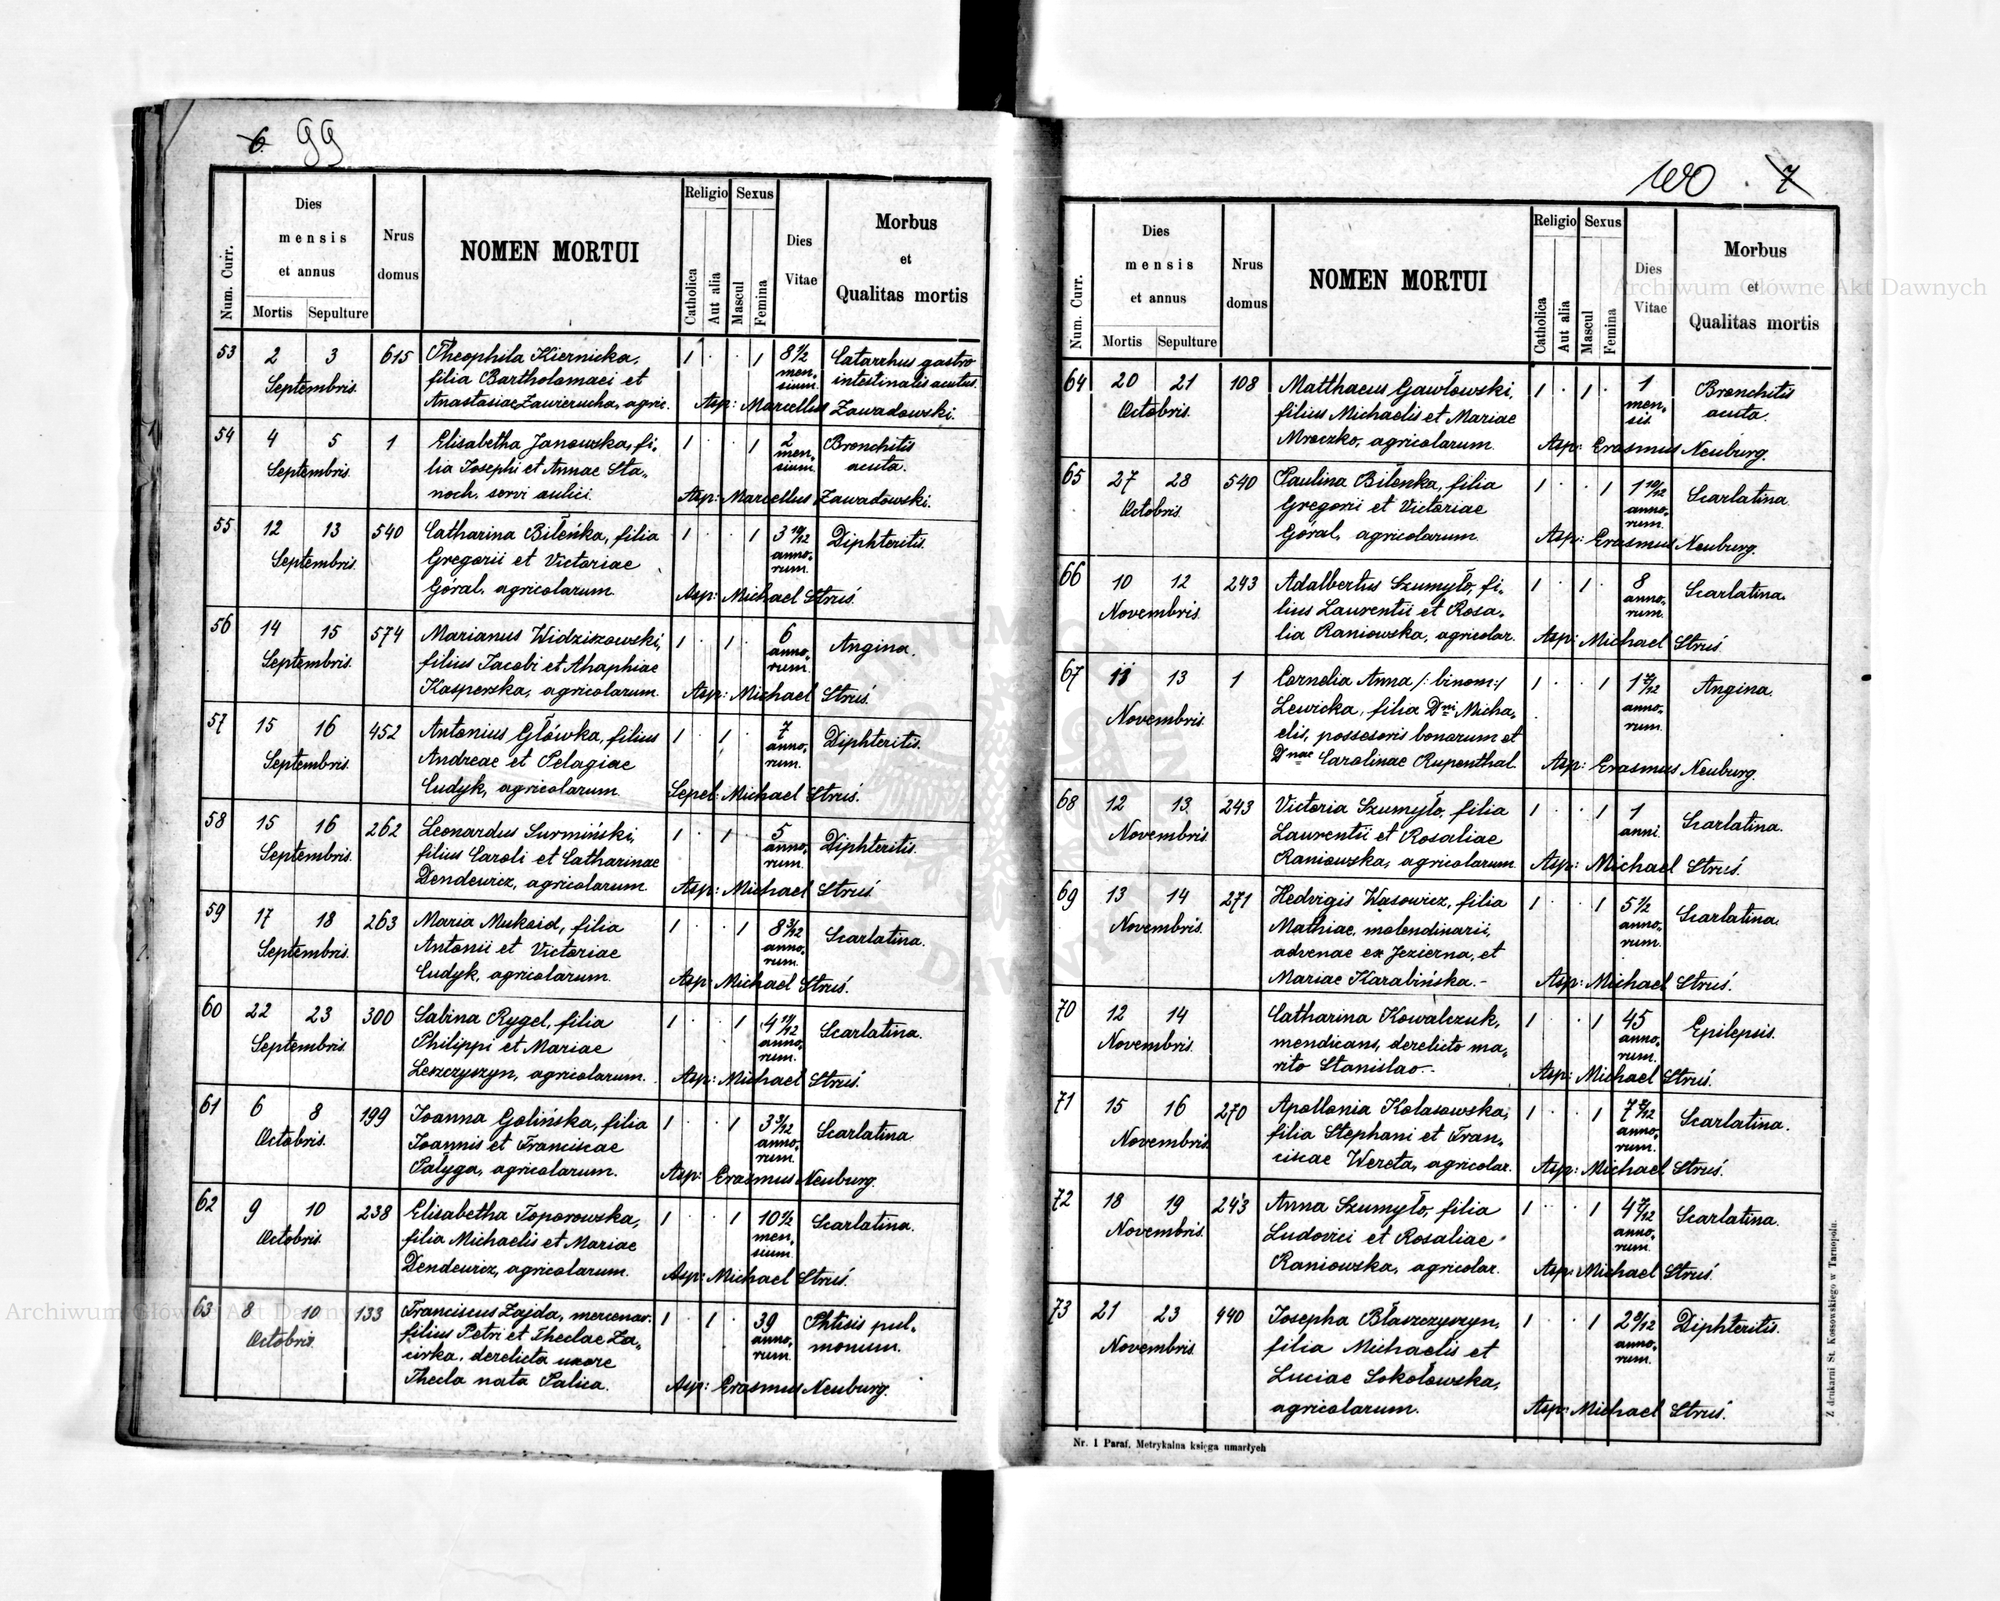 6. 99
Num. Curr.
Dies mensis et annus
Mortis Sepulture
Nrus domus
NOMEN MORTUI
Religio
Catholica
Aut alia
Sexus
Mascul
Femina
Dies Vitae
Morbus et Qualitas mortis
53 2 3 615 Theophila Kiernicka, 1 . . 1 8 1/2 Catarrhus gastro
Septembris. filia Bartholomaei et men- intestinalis acutus.
Anastasiae Zawierucha, agric. sium.
Asp: Marcellus Zawadowski.
54 4 5 1 Elisabetha Janowska, fi- 1 . . 1 2 Bronchitis
Septembris. lia Josephi et Annae Sta- men- acuta.
noch, servi aulici. sium.
Asp: Marcellus Zawadowski.
55 12 13 540 Catharina Bileńka, filia 1 . . 1 3 10/12 Diphteritis.
Septembris. Gregorii et Victoriae anno-
Góral, agricolarum. rum.
Asp: Michael Struś.
56 14 15 574 Marianus Widziszowski, 1 . 1 . 6 Angina.
Septembris. filius Jacobi et Ahaphiae anno-
Kasperska, agricolarum. rum.
Asp: Michael Struś.
57 15 16 452 Antonius Główka, filius 1 . 1 . 7 Diphteritis.
Septembris. Andreae et Pelagiae anno-
Cudyk, agricolarum. rum.
Sepel: Michael Struś.
58 15 16 262 Leonardus Surmiński, 1 . 1 . 5 Diphteritis.
Septembris. filius Caroli et Catharinae anno-
Dendewicz, agricolarum. rum.
Asp: Michael Struś
59 17 18 263 Maria Mukoid, filia 1 . . 1 8 3/12 Scarlatina.
Septembris. Antonii et Victoriae anno-
Cudyk, agricolarum. rum.
Asp: Michael Struś.
60 22 23 300 Sabina Rygel, filia 1 . . 1 4 11/12 Scarlatina.
Septembris. Philippi et Mariae anno-
Leszczyszyn, agricolarum. rum.
Asp: Michael Struś.
61 6 8 199 Joanna Golińska, filia 1 . . 1 3 3/12 Scarlatina
Octobris. Joannis et Franciscae anno-
Pałyga, agricolarum. rum.
Asp: Erasmus Neuburg.
62 9 10 238 Elisabetha Toporowska, 1 . . 1 10 1/2 Scarlatina.
Octobris. filia Michaelis et Mariae men-
Dendewicz, agricolarum. sium.
Asp: Michael Struś.
63 8 10 133 Franciscus Zajda, mercenar. 1 . 1 . 39 Phtisis pul-
Octobris. filius Petri et Theclae Za- anno- monum.
cirka, derelicta uxore rum.
Thecla nata Palica.
Asp: Erasmus Neuburg.
100 . 7
Num. Curr.
Dies mensis et annus
Mortis Sepulture
Nrus domus
NOMEN MORTUI
Religio
Catholica
Aut alia
Sexus
Mascul
Femina
Dies Vitae
Morbus et Qualitas mortis
64 20 21 108 Matthaeus Gawłowski, 1 . 1 . 1 Bronchitis
Octobris. filius Michaelis et Mariae men- acuta.
Mroczko, agricolarum. sis.
Asp: Erasmus Neuburg.
65 27 28 540 Paulina Bileńka, filia 1 . . 1 1 10/12 Scarlatina.
Octobris. Gregorii et Victoriae anno-
Góral, agricolarum. rum.
Asp: Erasmus Neuburg.
66 10 12 243 Adalbertus Szumyło, fi- 1 . 1 . 8 Scarlatina.
Novembris. lius Laurentii et Rosa- anno-
lia Raniowska, agricolar. rum.
Asp: Michael Struś.
67 11 13 1 Cornelia Anna /: binom:/ 1 . . 1 1 7/12 Angina.
Novembris. Lewicka, filia Dni Micha- anno-
elis, possesoris bonorum et rum.
Dnae Carolinae Rupenthal.
Asp: Erasmus Neuburg.
68 12 13. 243 Victoria Szumyło, filia 1 . . 1 1 Scarlatina.
Novembris. Laurentii et Rosaliae anni.
Raniowska, agricolarum.
Asp: Michael Struś.
69 13 14 271 Hedvigis Wąsowicz, filia 1 . . 1 5 1/2 Scarlatina.
Novembris. Mathiae, molendinarii, anno-
advenae ex Jezierna, et rum.
Mariae Karabińska.-
Asp: Michael Struś.
70 12 14 Catharina Kowalczuk, 1 . . 1 45 Epilepsis.
Novembris. mendicans, derelicto ma- anno-
rito Stanislao.- rum.
Asp: Michael Struś.
71 15 16 270 Apollonia Kolasowska, 1 . . 1 7 8/12 Scarlatina.
Novembris. filia Stephani et Fran- anno-
ciscae Wereta, agricolar. rum.
Asp: Michael Struś.
72 18 19 243 Anna Szumyło, filia 1 . . 1 4 7/12 Scarlatina.
Novembris. Ludovici et Rosaliae anno-
Raniowska, agricolar. rum.
Asp: Michael Struś.
73 21 23 440 Josepha Błaszczyszyn, 1 . . 1 2 6/12 Diphteritis.
Novembris. filia Michaelis et anno-
Luciae Sokołowska, rum.
agricolarum.
Asp: Michael Struś.
Nr. 1 Paraf. Metrykalna księga umarłych
Z drukarni St. Kossowskiego w Tarnopolu.
Archiwum Główne Akt Dawnych
Archiwum Główne Akt Dawnych